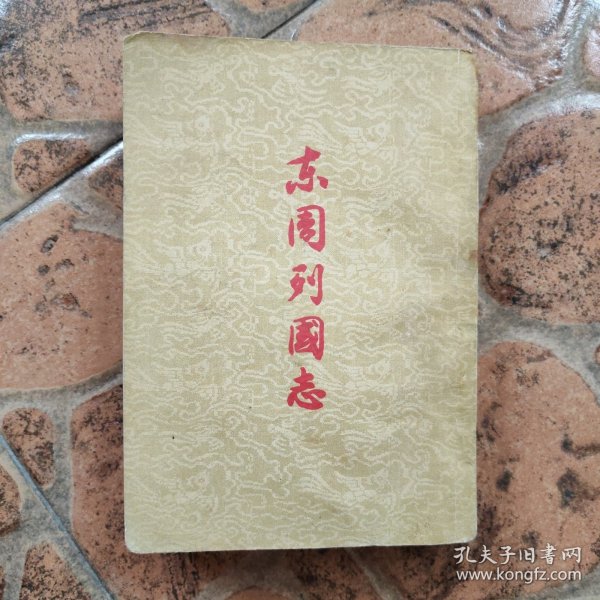 东周列國志
孔夫子旧書网
www.kongfz.com